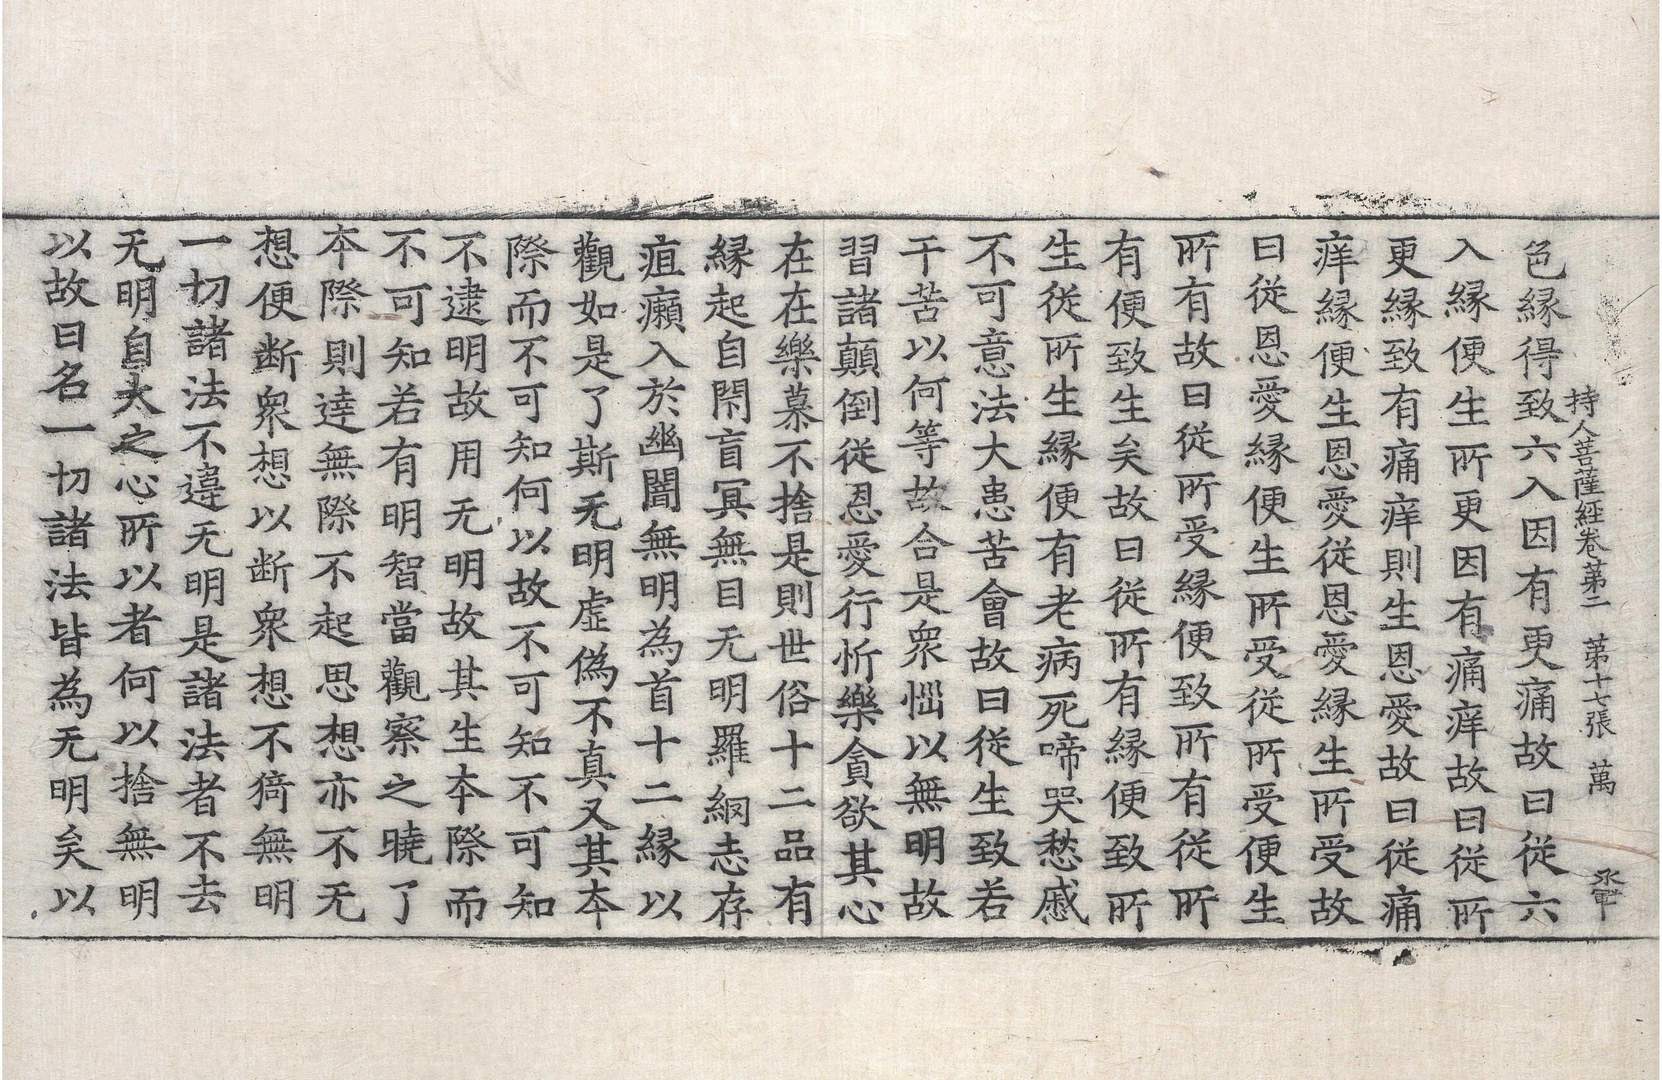 持人菩薩經卷第二　第十七張　萬
色緣得致六入因有更痛故曰從六
入緣便生所更因有痛痒故曰從所
更緣致有痛痒則生恩愛故曰從痛
痒緣便生恩愛從恩愛緣生所受故
曰從恩愛緣便生所受從所受便生
所有故曰從所受緣便致所有從所
有便致生矣故曰從所有緣便致所
生從所生緣便有老病死啼哭愁慼
不可意法大患苦會故曰從生致若
干苦以何等故合是衆惱以無明故
習諸顛倒從恩愛行忻樂貪欲其心
在在樂慕不捨是則世俗十二品有
緣起自閇盲冥無目无明羅網志存
疽癩入於幽闇無明為首十二緣以
觀如是了斯无明虛偽不真又其夲
際而不可知何以故不可知不可知
不逮明故用无明故其生夲際而
不可知若有明智當觀察之曉了
夲際則逹無際不起思想亦不无
想便断衆想以断衆想不猗無明
一切諸法不違无明是諸法者不去
无明自大之心所以者何以捨無明
以故曰名一切諸法皆為无明矣以